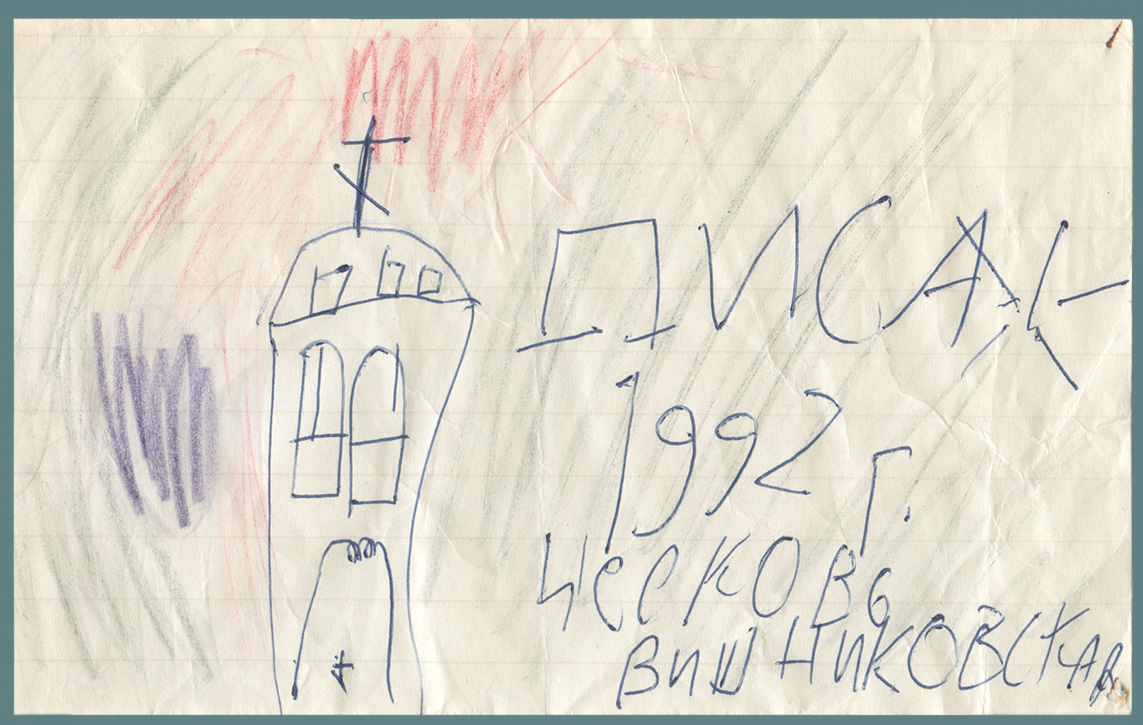 ПИСАК
1992 г.
ЦеРКОВЬ
ВИШНИКОВСКАЯ